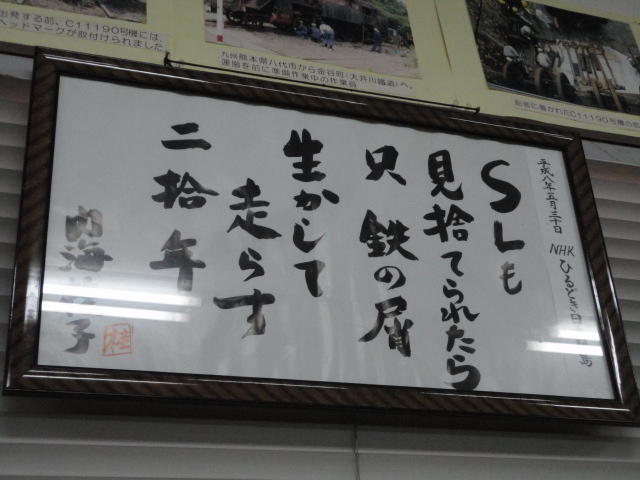 出発する前、C11190号機には
ヘッドマークが取付けられました
九州熊本県八代市から金谷町(大井川鐵道)へ。
運搬を前に準備作業中の作業員
C11190号機の
平成八年五月三十日 NHK ひるどき日
島
SLも
見捨てられたら
只 鉄の屑
生かして
走らす
二拾年
内海 子
桂